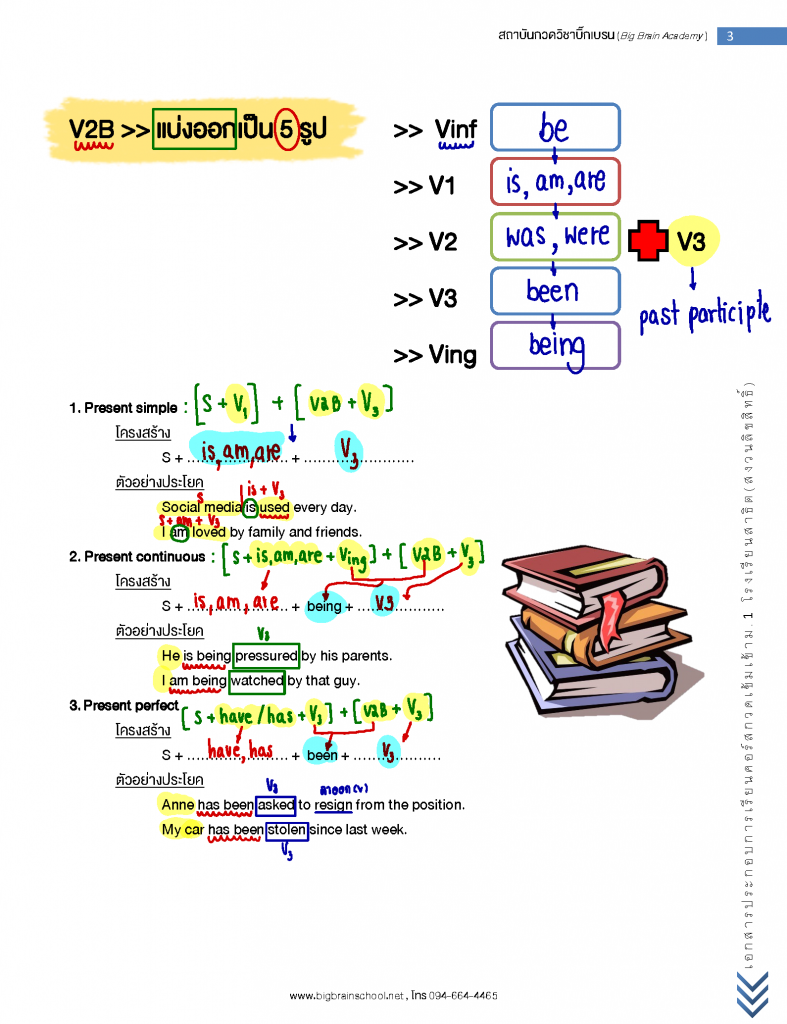 สถาบันกวดวิชาบิ๊กเบรน (Big Brain Academy) 3
V2B >> แบ่งออกเป็น 5 รูป
>> Vinf be
>> V1 is, am, are
>> V2 was, were V3
>> V3 been
past participle
>> Ving being
1. Present simple : [S + V1] + [V2B + V3]
โครงสร้าง
S + ...is, am, are... + ...V3...
ตัวอย่างประโยค
S is + V3
Social media is used every day.
S + am + V3
I am loved by family and friends.
2. Present continuous : [S + is, am, are + Ving] + [V2B + V3]
โครงสร้าง
S + ...is, am, are... + being + ...V3...
ตัวอย่างประโยค
V3
He is being pressured by his parents.
I am being watched by that guy.
3. Present perfect [S + have / has + V3] + [V2B + V3]
โครงสร้าง
S + ...have, has... + been + ...V3...
ตัวอย่างประโยค
V3 ลาออก (v)
Anne has been asked to resign from the position.
My car has been stolen since last week.
V3
เอกสารประกอบการเรียนคอร์สกวดเข้มเข้าม.1 โรงเรียนสาธิต(สงวนลิขสิทธิ์)
www.bigbrainschool.net , โทร 094-664-4465